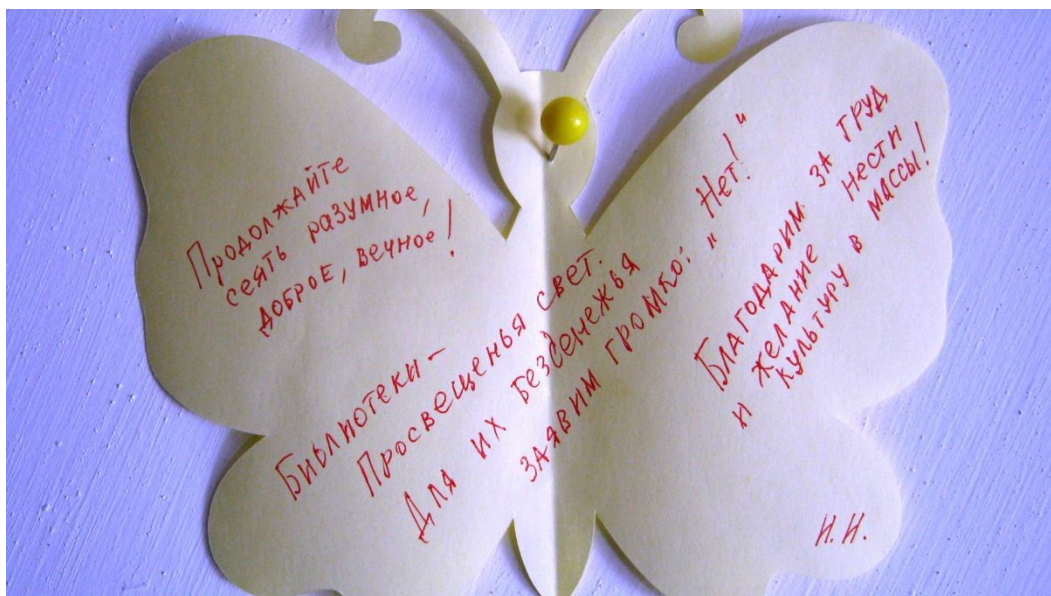 Продолжайте
сеять разумное,
доброе, вечное!
Библиотеки -
Просвещенья свет.
Для их безденежья
заявим громко: "Нет!"
Благодарим за труд
и желание нести
культуру в массы!
Н.Н.